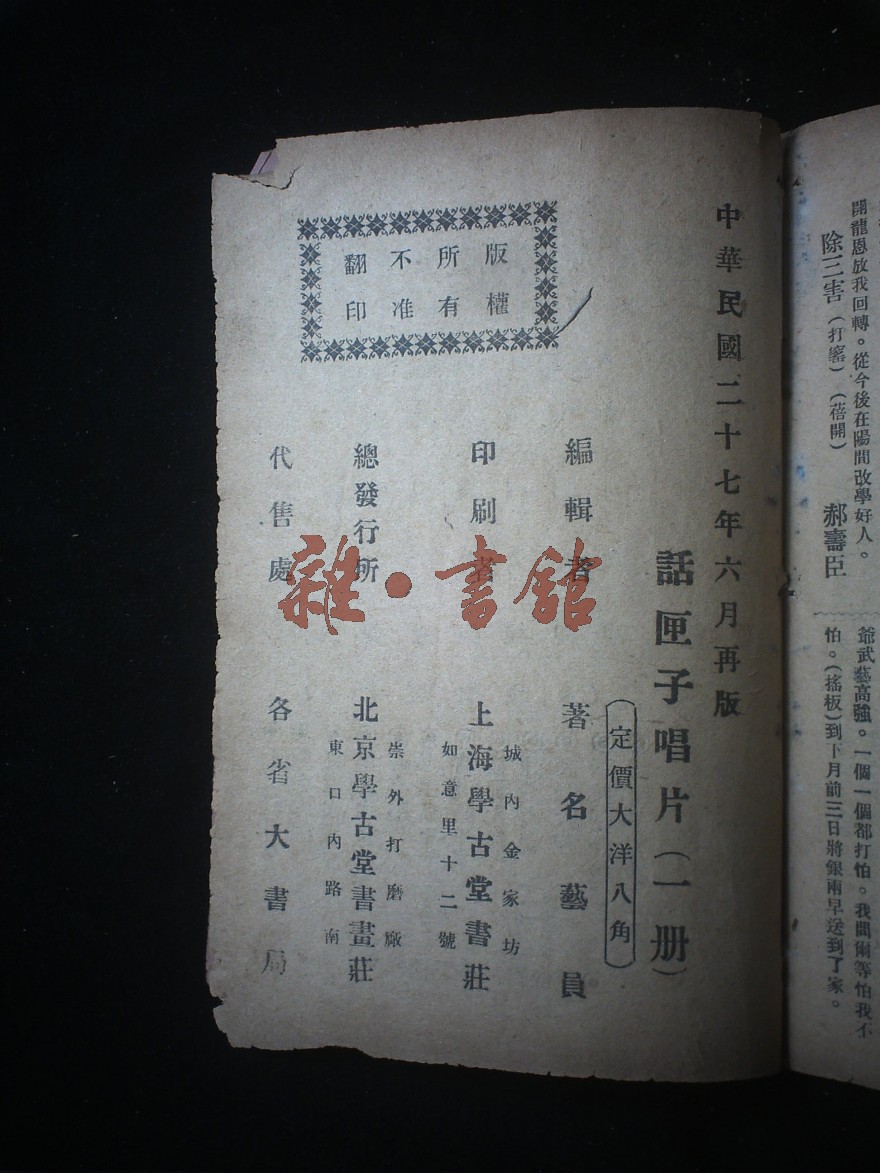 開龍恩放我回轉。從今後在陽間改學好人。
除三害（打窰）（蓓開） 郝壽臣
爺武藝高強。一個一個都打怕。我問爾等怕我不
怕。（搖板）到下月前三日將銀兩早送到了家。
中華民國二十七年六月再版
話匣子唱片（一册）
（定價大洋八角）
編輯者 著名藝員
印刷者 上海學古堂書莊
城内金家坊
如意里十二號
總發行所 北京學古堂書畫莊
崇外打磨廠
東口内路南
代售處 各省大書局
版權所有
不准翻印
雜·書館